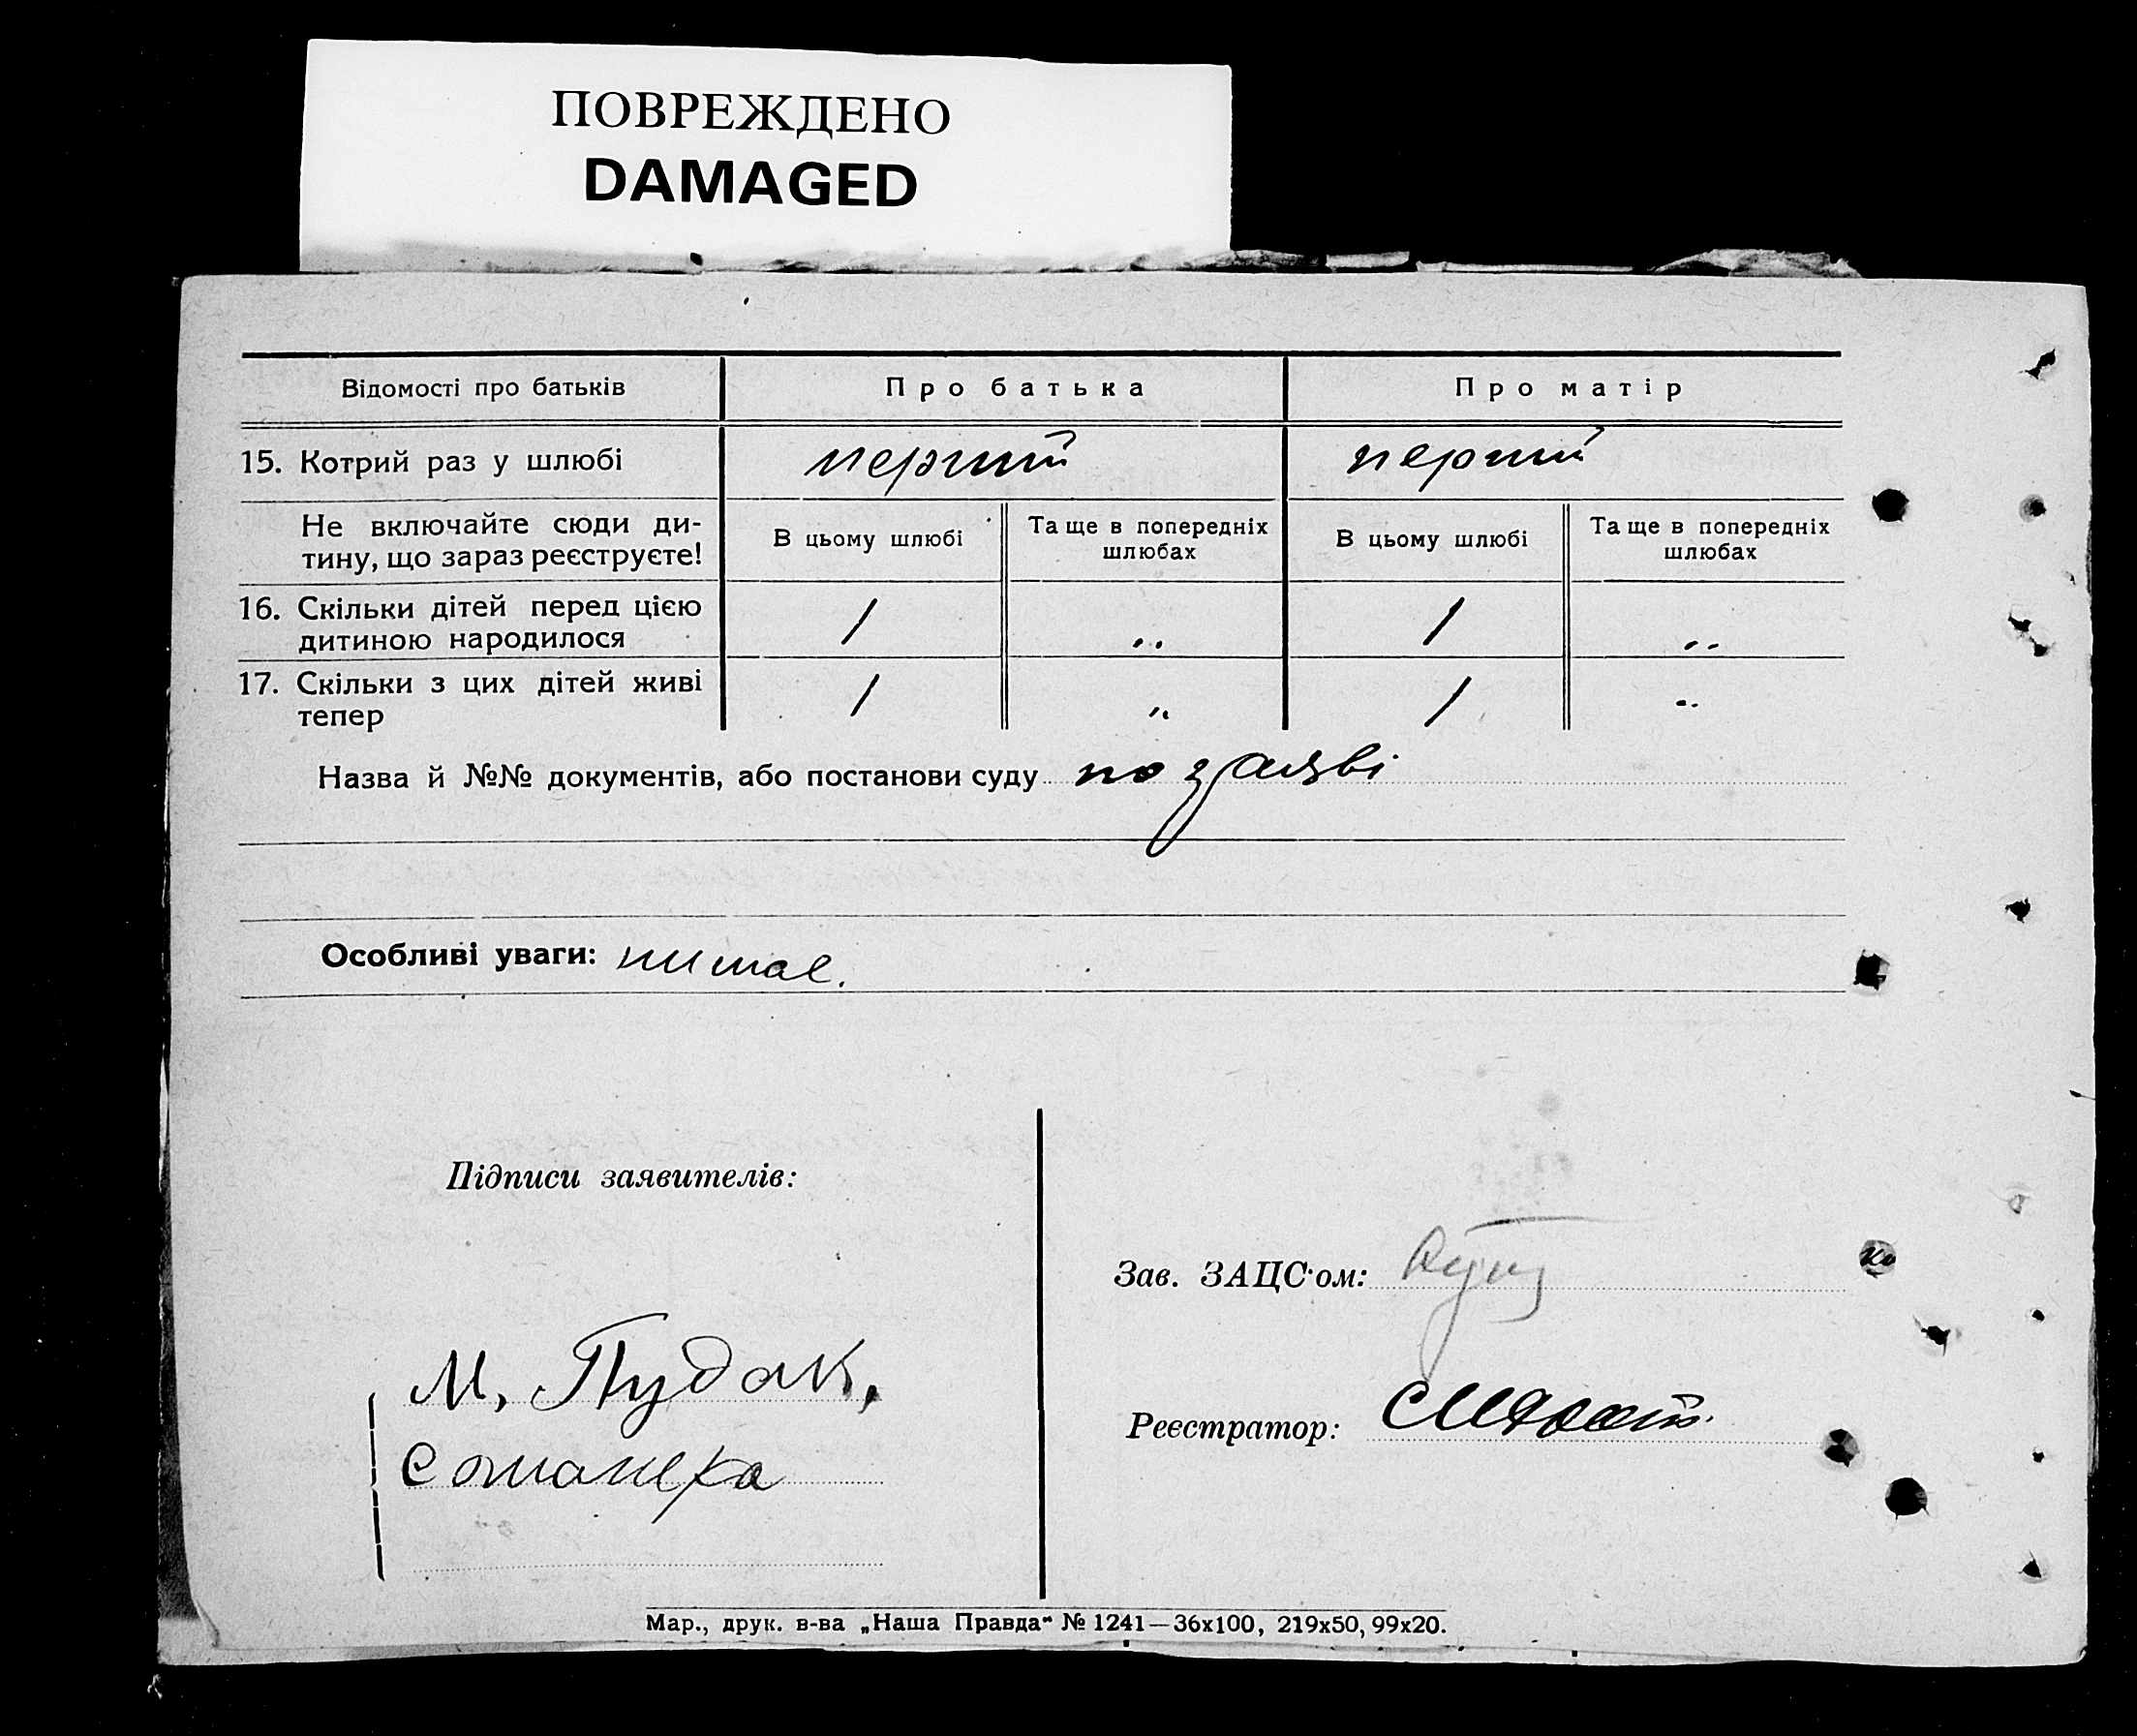 ПОВРЕЖДЕНО
DAMAGED
Відомості про батьків
Про батька
Про матір
15. Котрий раз у шлюбі
перший
перший
Не включайте сюди ди-
тину, що зараз реєструєте!
В цьому шлюбі
Та ще в попередніх
шлюбах
В цьому шлюбі
Та ще в попередніх
шлюбах
16. Скільки дітей перед цією
дитиною народилося
1
„
1
„
17. Скільки з цих дітей живі
тепер
1
„
1
„
Назва й №№ документів, або постанови суду по заяві
Особливі уваги: нимає.
Підписи заявителів:
М, Пудак,
Зав. ЗАЦС'ом:
Реєстратор:
Мар., друк. в-ва „Наша Правда" № 1241—36х100, 219х50, 99х20.